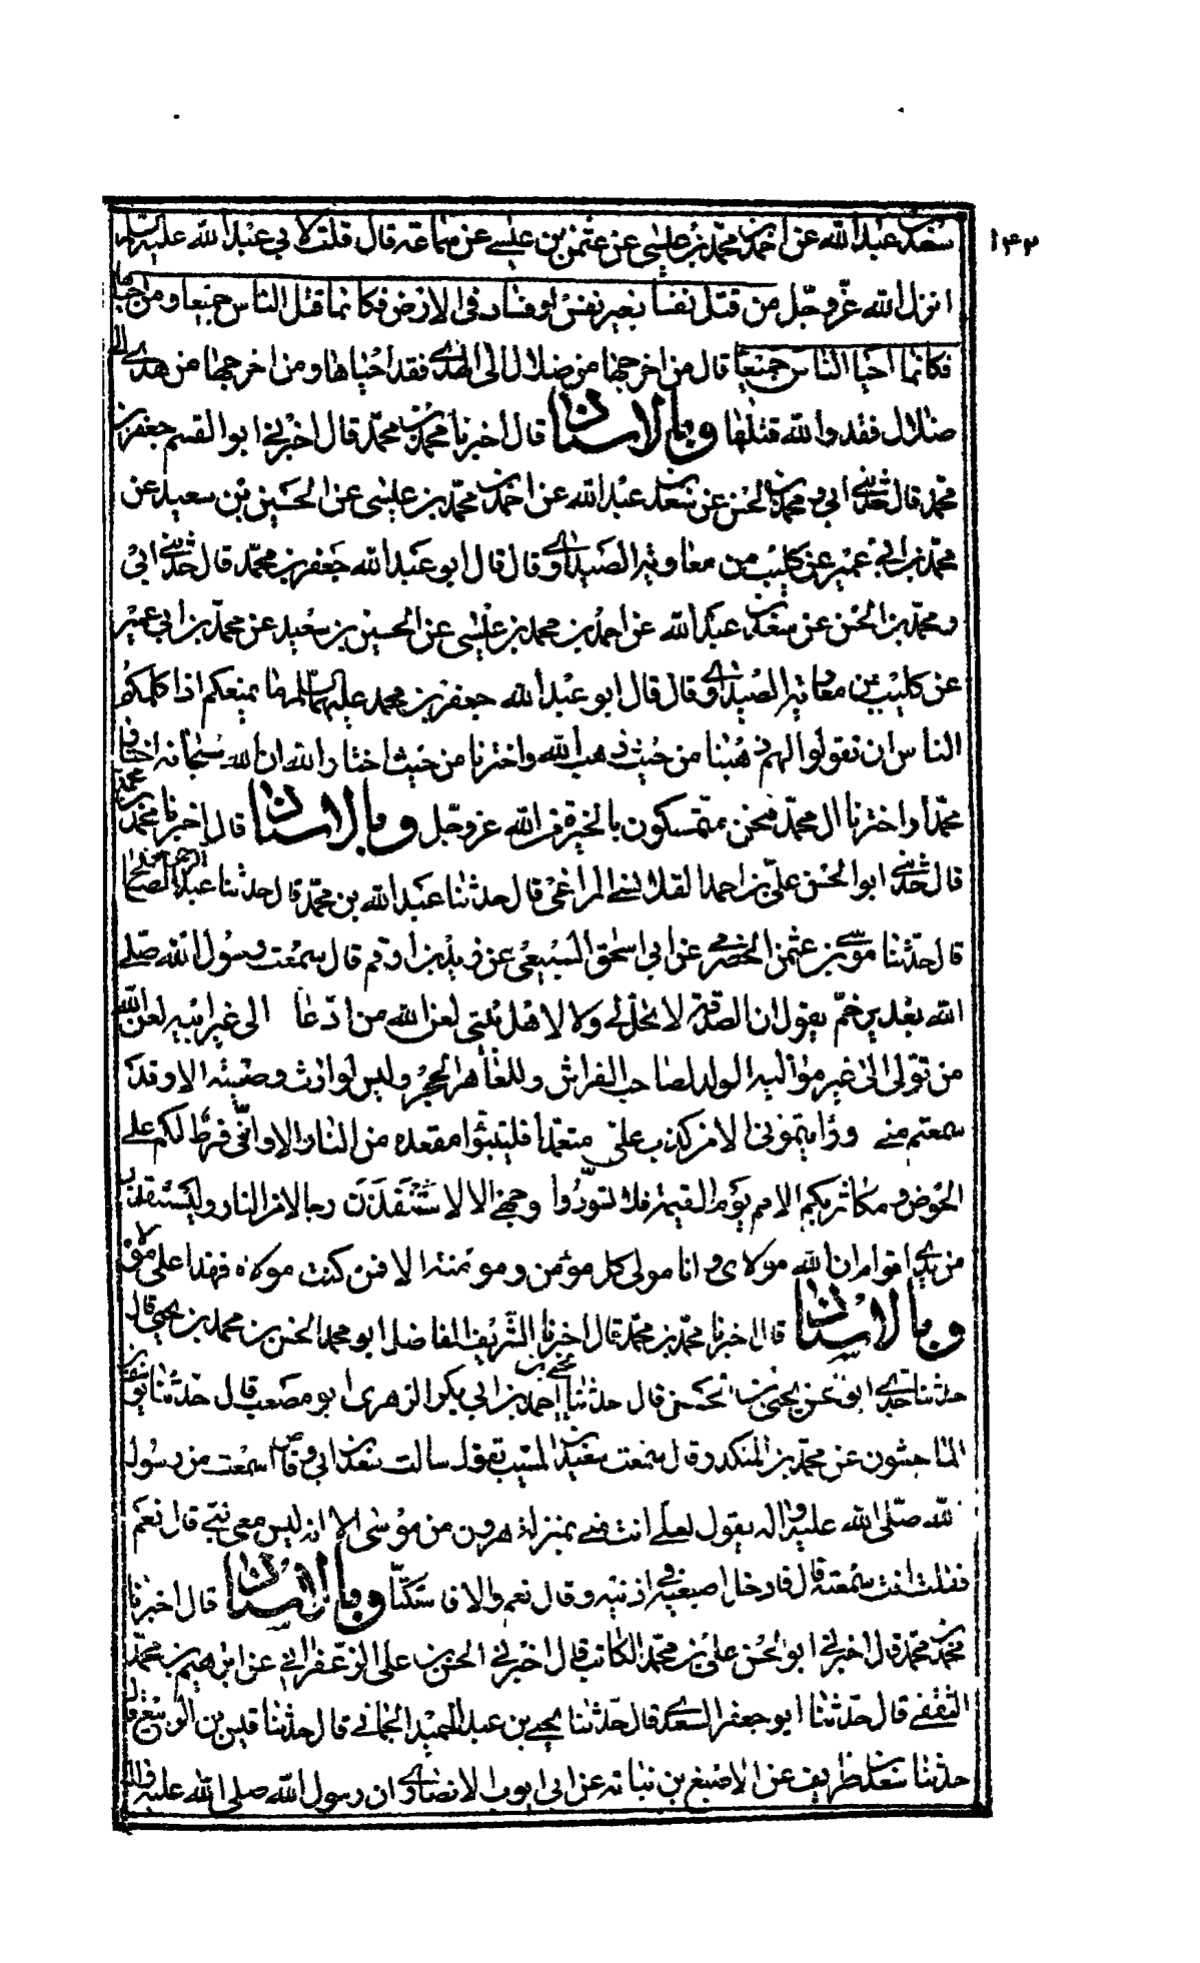 ۱۴۲
سعد بن عبدالله عن احمد بن محمد بن عیسی عن عثمن بن عیسے عن سماعة قال قلت لابی عبدالله علیه السلم
انزل الله عزّ وجلّ من قتل نفسا بغیر نفس او فساد فی الارض فکانما قتل الناس جمیعا و من احیاها
فکانما احیا الناس جمیعا قال من اخرجها من ضلال الی الهدی فقد احیاها و من اخرجها من هدی الی
ضلال فقد والله قتلها وبالاسناد قال اخبرنا محمد بن محمد قال اخبرنی ابو القسم جعفر بن
محمد قال حدثنی ابی و محمد بن الحسن عن سعد بن عبدالله عن احمد بن محمد بن عیسی عن الحسین بن سعید عن
محمد بن ابی عمیر عن کلیب بن معاویة الصیداوی قال قال ابو عبدالله جعفر بن محمد قال حدثنی ابی
و محمد بن الحسن عن سعد بن عبدالله عن احمد بن محمد بن عیسی عن الحسین بن سعید عن محمد بن ابی عمیر
عن کلیب بن معاویة الصیداوی قال قال ابو عبدالله جعفر بن محمد علیهما السلم ما یمنعکم اذا کلمکم
الناس ان تقولوا لهم ذهبنا من حیث ذهب الله واخترنا من حیث اختار الله ان الله سبحانه اختار
محمدا واخترنا ال محمد فنحن متمسکون بالخیرة من الله عز وجل وبالاسناد قال اخبرنا محمد بن محمد
قال حدثنی ابو الحسن علی بن احمد القلانسی المراغی قال حدثنا عبدالله بن محمد قال حدثنا عبد الرحمن بن صالح
قال حدثنا موسی بن عثمن الحضرمی عن ابی اسحق السبیعی عن زید بن ارقم قال سمعت رسول الله صلی
الله بغدیر خم یقول ان الصدقة لا تحل لی ولا لاهل بیتی لعن الله من ادعا الی غیر ابیه لعن الله
من تولی الی غیر موالیه الولد لصاحب الفراش وللعاهر الحجر ولیس لوارث وصیة الا وقد
سمعتم منی ورایتمونی الا من کذب علی متعمدا فلیتبوا مقعده من النار الا وانی فرط لکم علی
الحوض و مکاثر بکم الامم یوم القیمة فلا تسودوا وجهی الا لاستنقذن رجالا من النار ولیستنقذن
من یدی اقوام ان الله مولای و انا مولی کل مؤمن و مؤمنة الا فمن کنت مولاه فهذا علی مولاه
وبالاسناد قال اخبرنا محمد بن محمد قال اخبرنا الشریف الفاضل ابو محمد الحسن بن محمد بن یحیی قال
حدثنا جدی ابو الحسن یحیی بن الحسن قال حدثنا احمد بن ابی بکر الزهری ابو مصعب قال حدثنا یوسف بن
الماجشون عن محمد بن المنکدر قال سمعت سعید بن المسیب یقول سالت سعد بن ابی وقاص اسمعت من رسول
الله صلی الله علیه واله یقول لعلی انت منی بمنزلة هرون من موسی الا انه لیس معی نبی قال نعم
فقلت انت سمعته قال فادخل اصبعیه فی اذنیه و قال نعم والا فاستکتا وبالاسناد قال اخبرنا
محمد بن محمد قال اخبرنی ابو الحسن علی بن محمد الکاتب قال اخبرنی الحسن بن علی الزعفرانی عن ابرهیم بن محمد
الثقفی قال حدثنا ابو جعفر السعدی قال حدثنا یحیی بن عبد الحمید الحمانی قال حدثنا قیس بن الربیع قال
حدثنا سعد بن طریف عن الاصبغ بن نباته عن ابی ایوب الانصاری ان رسول الله صلی الله علیه واله